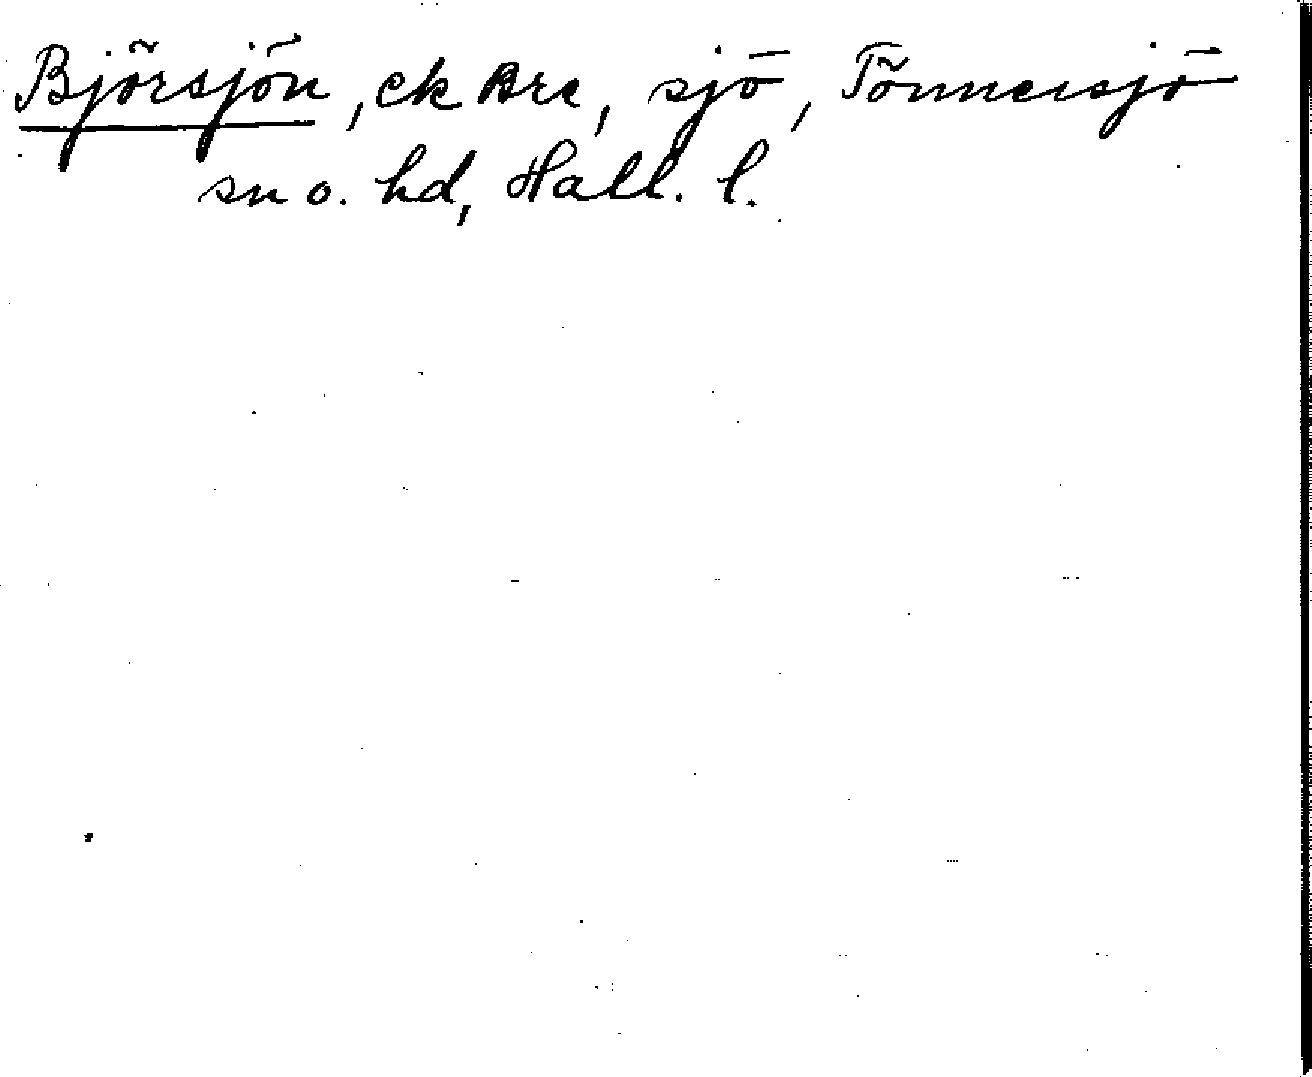 Björsjön, ek Bre, sjö, Tönnersjö
sn o. hd, Hall. l.